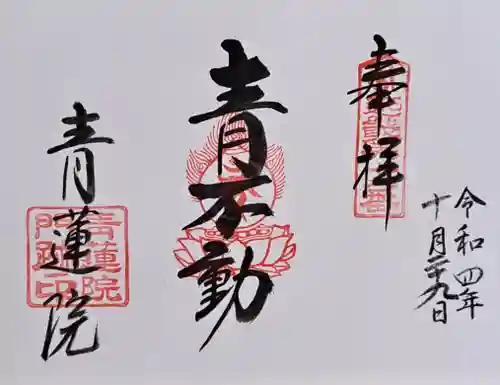 奉拝
令和四年
十月二十九日
青不動
青蓮院
青蓮院
門跡印